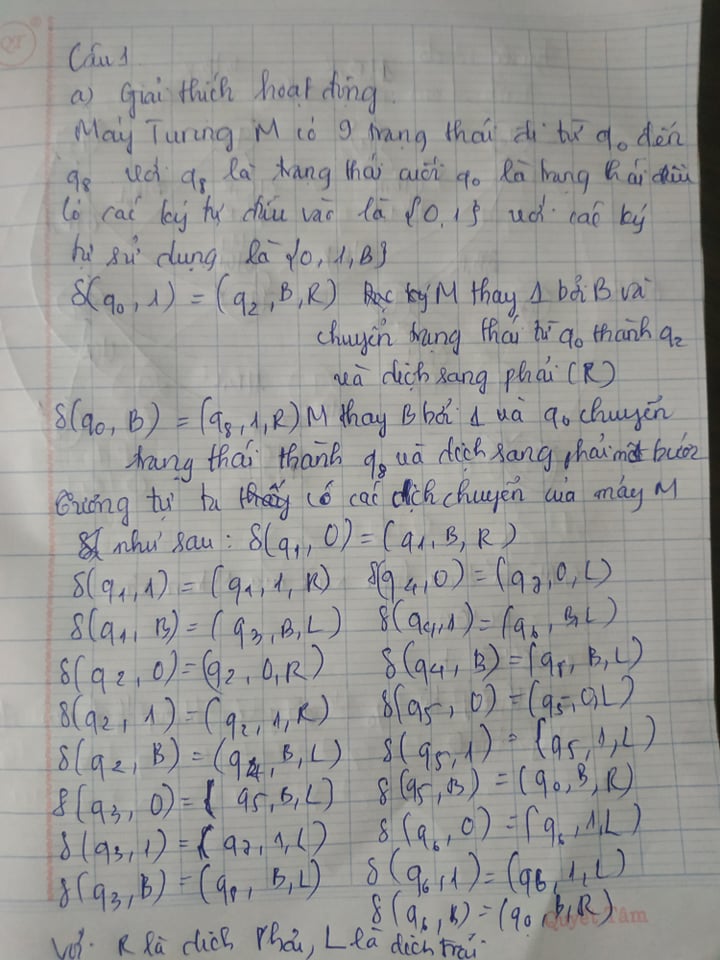 QT
Câu 1
a) Giải thích hoạt động.
Máy Turing M có 9 trạng thái đi từ q0 đến
q8 với q8 là trạng thái cuối q0 là trạng thái đầu
Có các ký tự đầu vào là {0,1} với các ký
tự sử dụng là {0, 1, B}
δ(q0, 1) = (q2, B, R) M thay 1 bởi B và
chuyển trạng thái từ q0 thành q2
và dịch sang phải (R)
δ(q0, B) = (q8, 1, R) M thay B bởi 1 và q0 chuyển
trạng thái thành q8 và dịch sang phải một bước
Tương tự ta có các dịch chuyển của máy M
như sau: δ(q1, 0) = (q1, B, R)
δ(q1, 1) = (q1, 1, R) δ(q4, 0) = (q7, 0, L)
δ(q1, B) = (q3, B, L) δ(q4, 1) = (q6, B, L)
δ(q2, 0) = (q2, 0, R) δ(q4, B) = (q8, B, L)
δ(q2, 1) = (q2, 1, R) δ(q5, 0) = (q5, 0, L)
δ(q2, B) = (q4, B, L) δ(q5, 1) = (q5, 1, L)
δ(q3, 0) = (q5, B, L) δ(q5, B) = (q0, B, R)
δ(q3, 1) = (q7, 1, L) δ(q6, 0) = (q6, 1, L)
δ(q3, B) = (q8, B, L) δ(q6, 1) = (q6, 1, L)
δ(q6, B) = (q0, B, R)
Với R là dịch Phải, L là dịch trái
Quyết Tâm